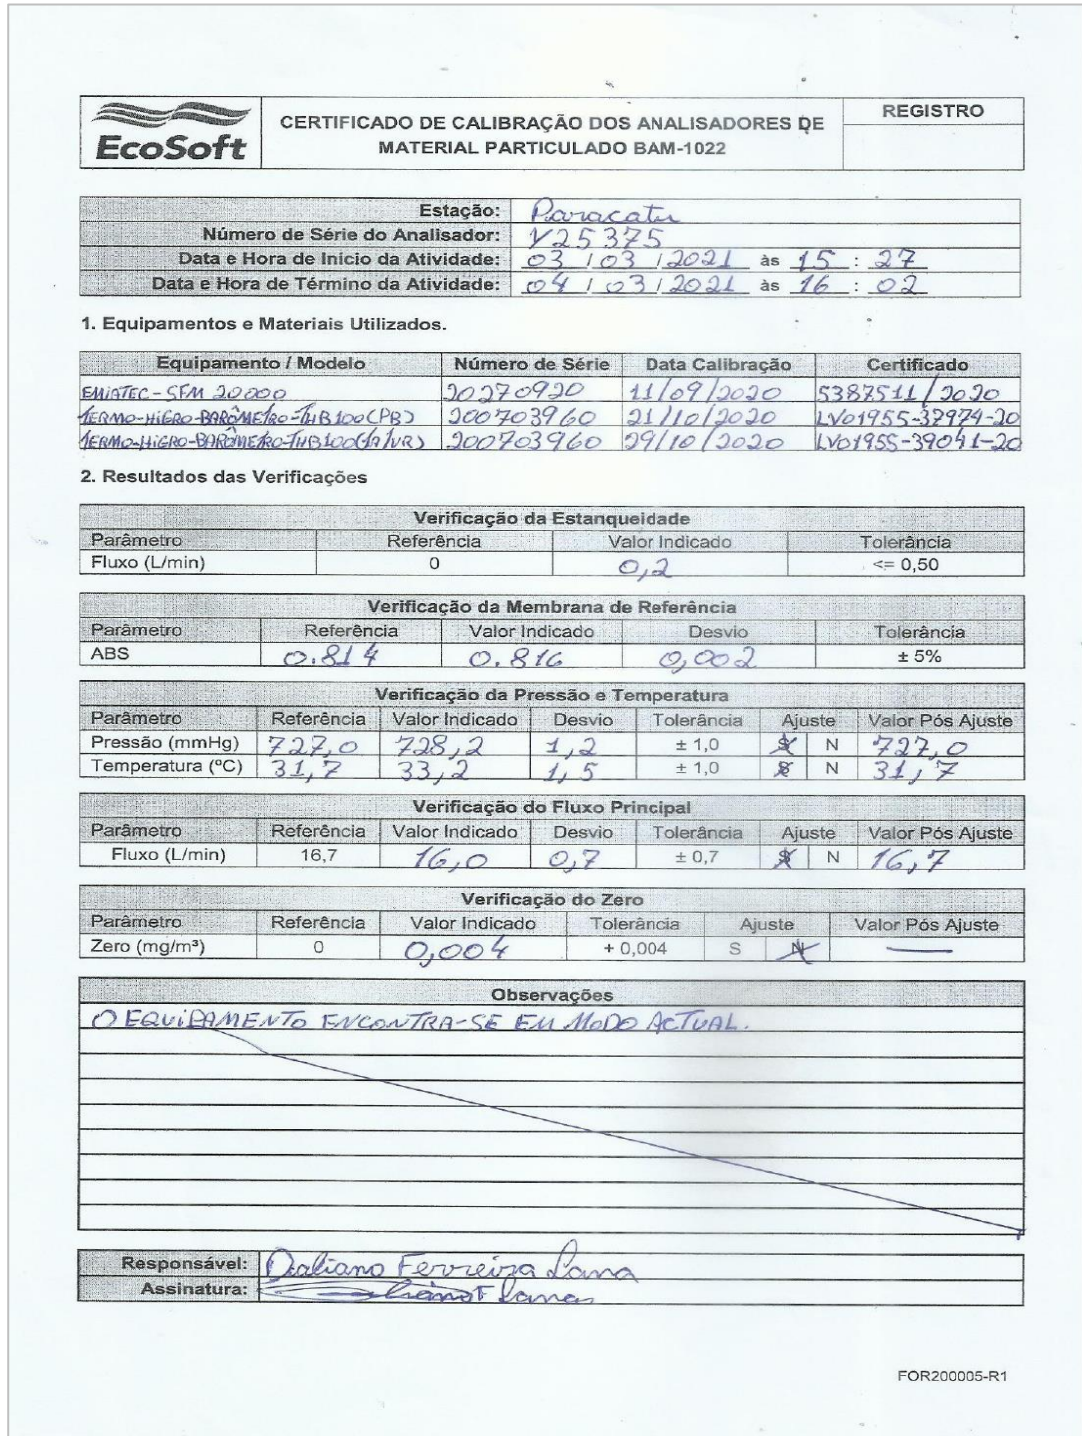 EcoSoft
CERTIFICADO DE CALIBRAÇÃO DOS ANALISADORES DE
MATERIAL PARTICULADO BAM-1022
REGISTRO
Estação: Paracatu
Número de Série do Analisador: Y25375
Data e Hora de Início da Atividade: 03/03/2021 às 15:27
Data e Hora de Término da Atividade: 04/03/2021 às 16:02
1. Equipamentos e Materiais Utilizados.
Equipamento / Modelo Número de Série Data Calibração Certificado
EMiATEC-SFM 20000 20270920 11/09/2020 5387511/2020
TERMO-HiGRO-BARÔMETRO-THB100(PB) 200703960 21/10/2020 LV01955-37974-20
TERMO-HiGRO-BARÔMETRO-THB100(TA/UR) 200703960 29/10/2020 LV01955-39041-20
2. Resultados das Verificações
Verificação da Estanqueidade
Parâmetro Referência Valor Indicado Tolerância
Fluxo (L/min) 0 0,2 <= 0,50
Verificação da Membrana de Referência
Parâmetro Referência Valor Indicado Desvio Tolerância
ABS 0.814 0.816 0,002 ± 5%
Verificação da Pressão e Temperatura
Parâmetro Referência Valor Indicado Desvio Tolerância Ajuste Valor Pós Ajuste
Pressão (mmHg) 727,0 728,2 1,2 ± 1,0 S N 727,0
Temperatura (ºC) 31,7 33,2 1,5 ± 1,0 S N 31,7
Verificação do Fluxo Principal
Parâmetro Referência Valor Indicado Desvio Tolerância Ajuste Valor Pós Ajuste
Fluxo (L/min) 16,7 16,0 0,7 ± 0,7 S N 16,7
Verificação do Zero
Parâmetro Referência Valor Indicado Tolerância Ajuste Valor Pós Ajuste
Zero (mg/m³) 0 0,004 + 0,004 S N —
Observações
O EQUiPAMENTO ENCONTRA-SE EM MODO ACTUAL.
Responsável: Ferreira Lana
Assinatura:
FOR200005-R1